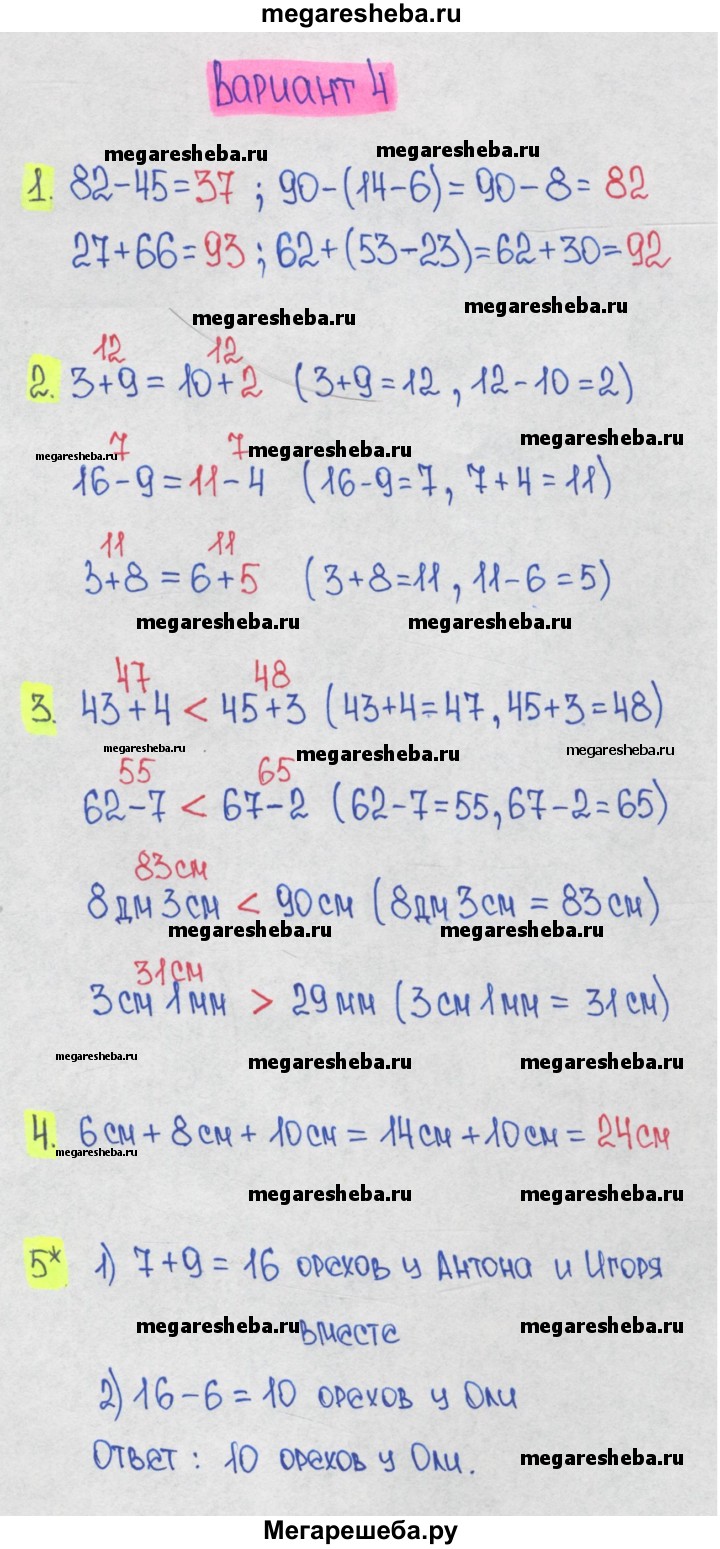 megaresheba.ru
Вариант 4
megaresheba.ru megaresheba.ru
1. 82-45=37 ; 90-(14-6)=90-8=82
27+66=93 ; 62+(53-23)=62+30=92
megaresheba.ru megaresheba.ru
12 12
2. 3+9=10+2 (3+9=12, 12-10=2)
megaresheba.ru 7 7 megaresheba.ru megaresheba.ru
16-9=11-4 (16-9=7, 7+4=11)
11 11
3+8=6+5 (3+8=11, 11-6=5)
megaresheba.ru megaresheba.ru
47 48
3. 43+4 < 45+3 (43+4=47, 45+3=48)
megaresheba.ru megaresheba.ru megaresheba.ru
55 65
62-7 < 67-2 (62-7=55, 67-2=65)
83см
8дм 3см < 90см (8дм 3см = 83см)
megaresheba.ru megaresheba.ru
31см
3см 1мм > 29мм (3см 1мм = 31см)
megaresheba.ru megaresheba.ru megaresheba.ru
4. 6см + 8см + 10см = 14см + 10см = 24см
megaresheba.ru
megaresheba.ru megaresheba.ru
5* 1) 7+9=16 орехов у Антона и Игоря
megaresheba.ru вместе megaresheba.ru
2) 16-6=10 орехов у Оли
Ответ: 10 орехов у Оли.
megaresheba.ru
Мегарешеба.ру